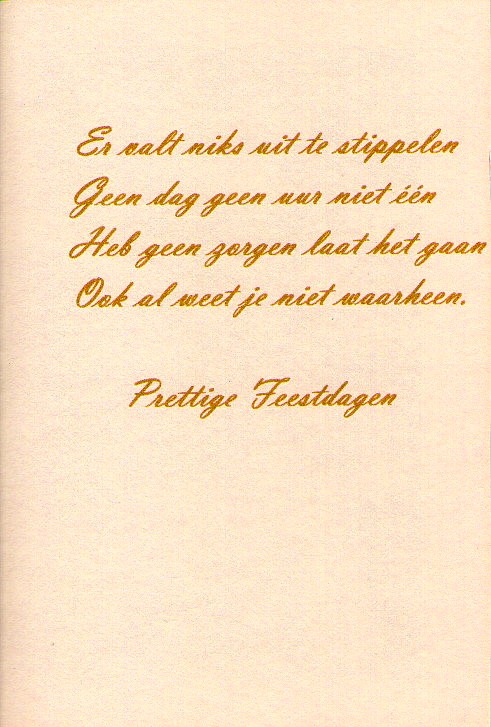 Er valt niks uit te stippelen
Geen dag geen uur niet één
Heb geen zorgen laat het gaan
Ook al weet je niet waarheen.
Prettige Feestdagen